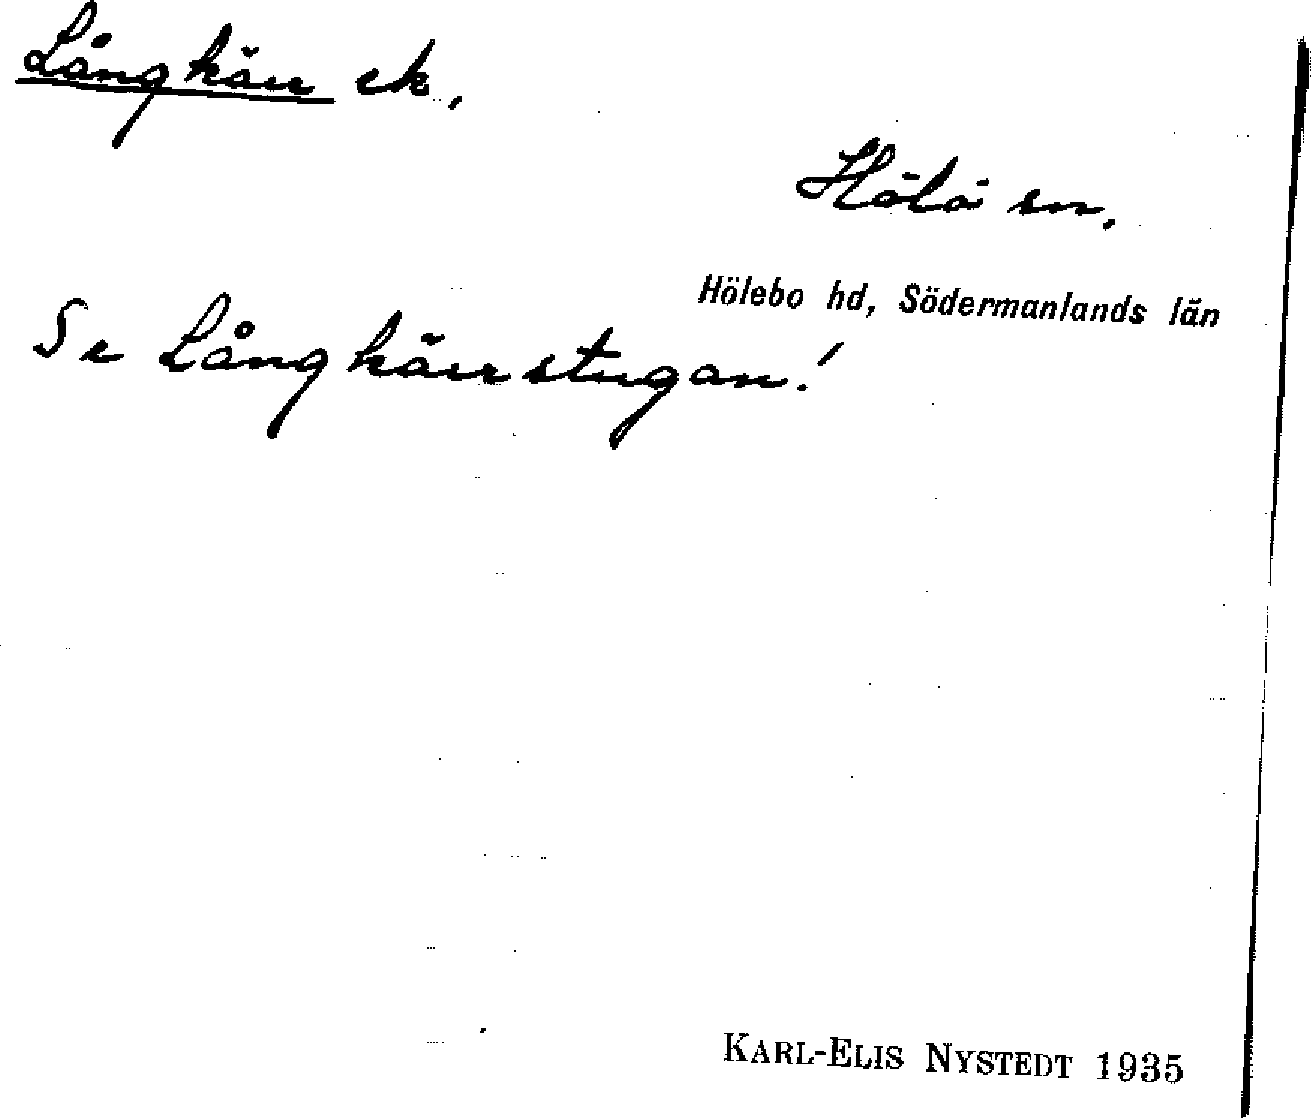 Långkärr ek.
Hölö sn.
Hölebo hd, Södermanlands län
Se Långkärrstugan!
KARL-ELIS NYSTEDT 1935